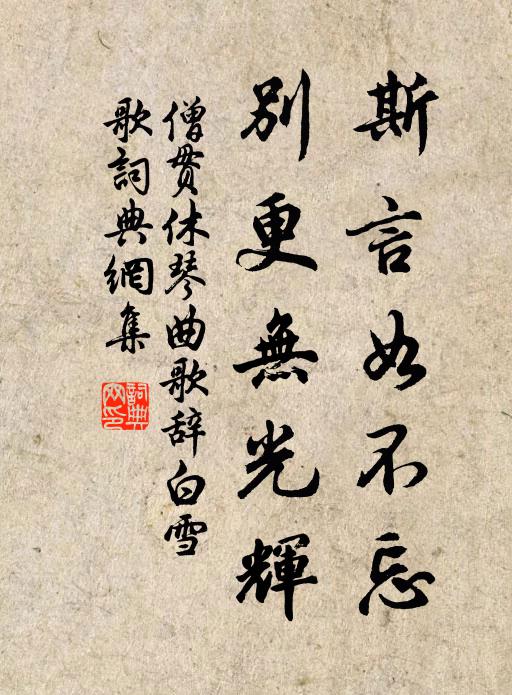 斯言如不忘
別更無光輝
僧贯休琴曲歌辞白雪
歌詞典網集
詞典
网印